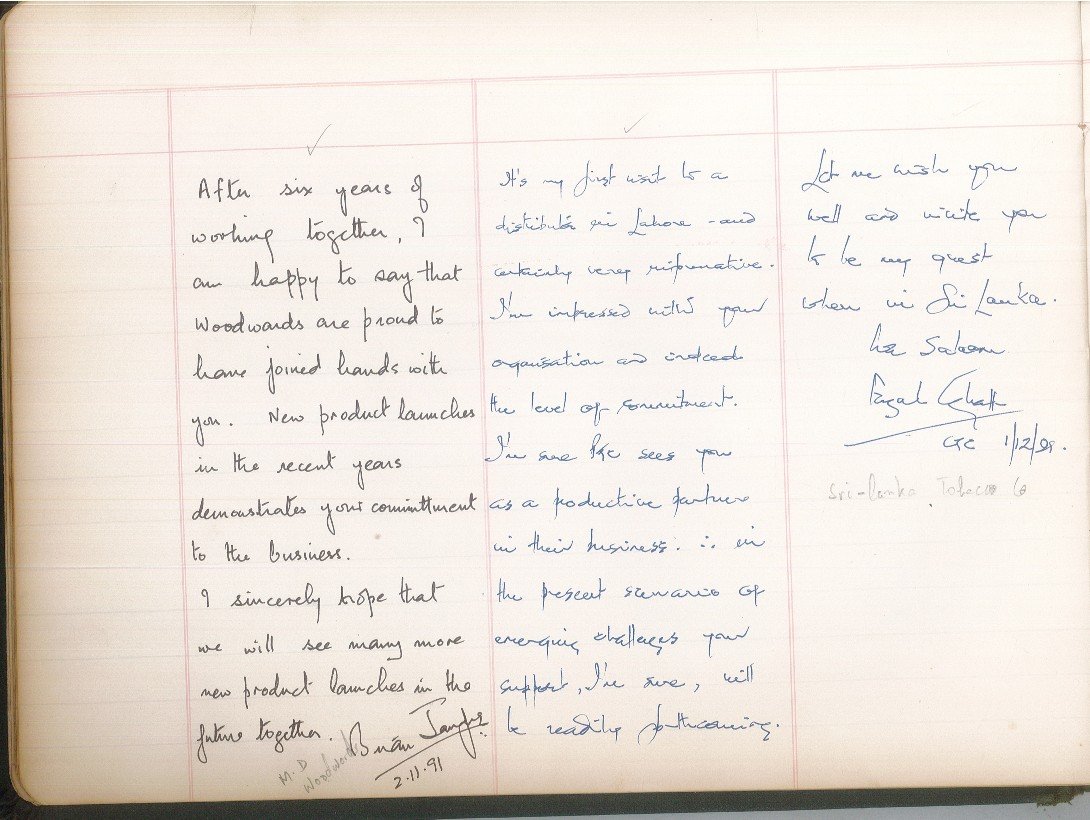 After six years of
working together, I
am happy to say that
Woodwards are proud to
have joined hands with
you. New product launches
in the recent years
demonstrates your committment
to the business.
I sincerely hope that
we will see many more
new product launches in the
future together. Brian
2.11.91
M.D
Woodwards
It's my first visit to a
distributor in Lahore and
certainly very informative.
I'm impressed with your
organisation and indeed
the level of commitment.
I'm sure PTC sees you
as a productive partner
in their business. ∴ in
the present scenario of
emerging challenges your
support, I'm sure, will
be readily forthcoming.
Let me wish you
well and invite you
to be my guest
when in Sri Lanka.
CTC 1/12/91.
Sri-lanka Tobacco Co